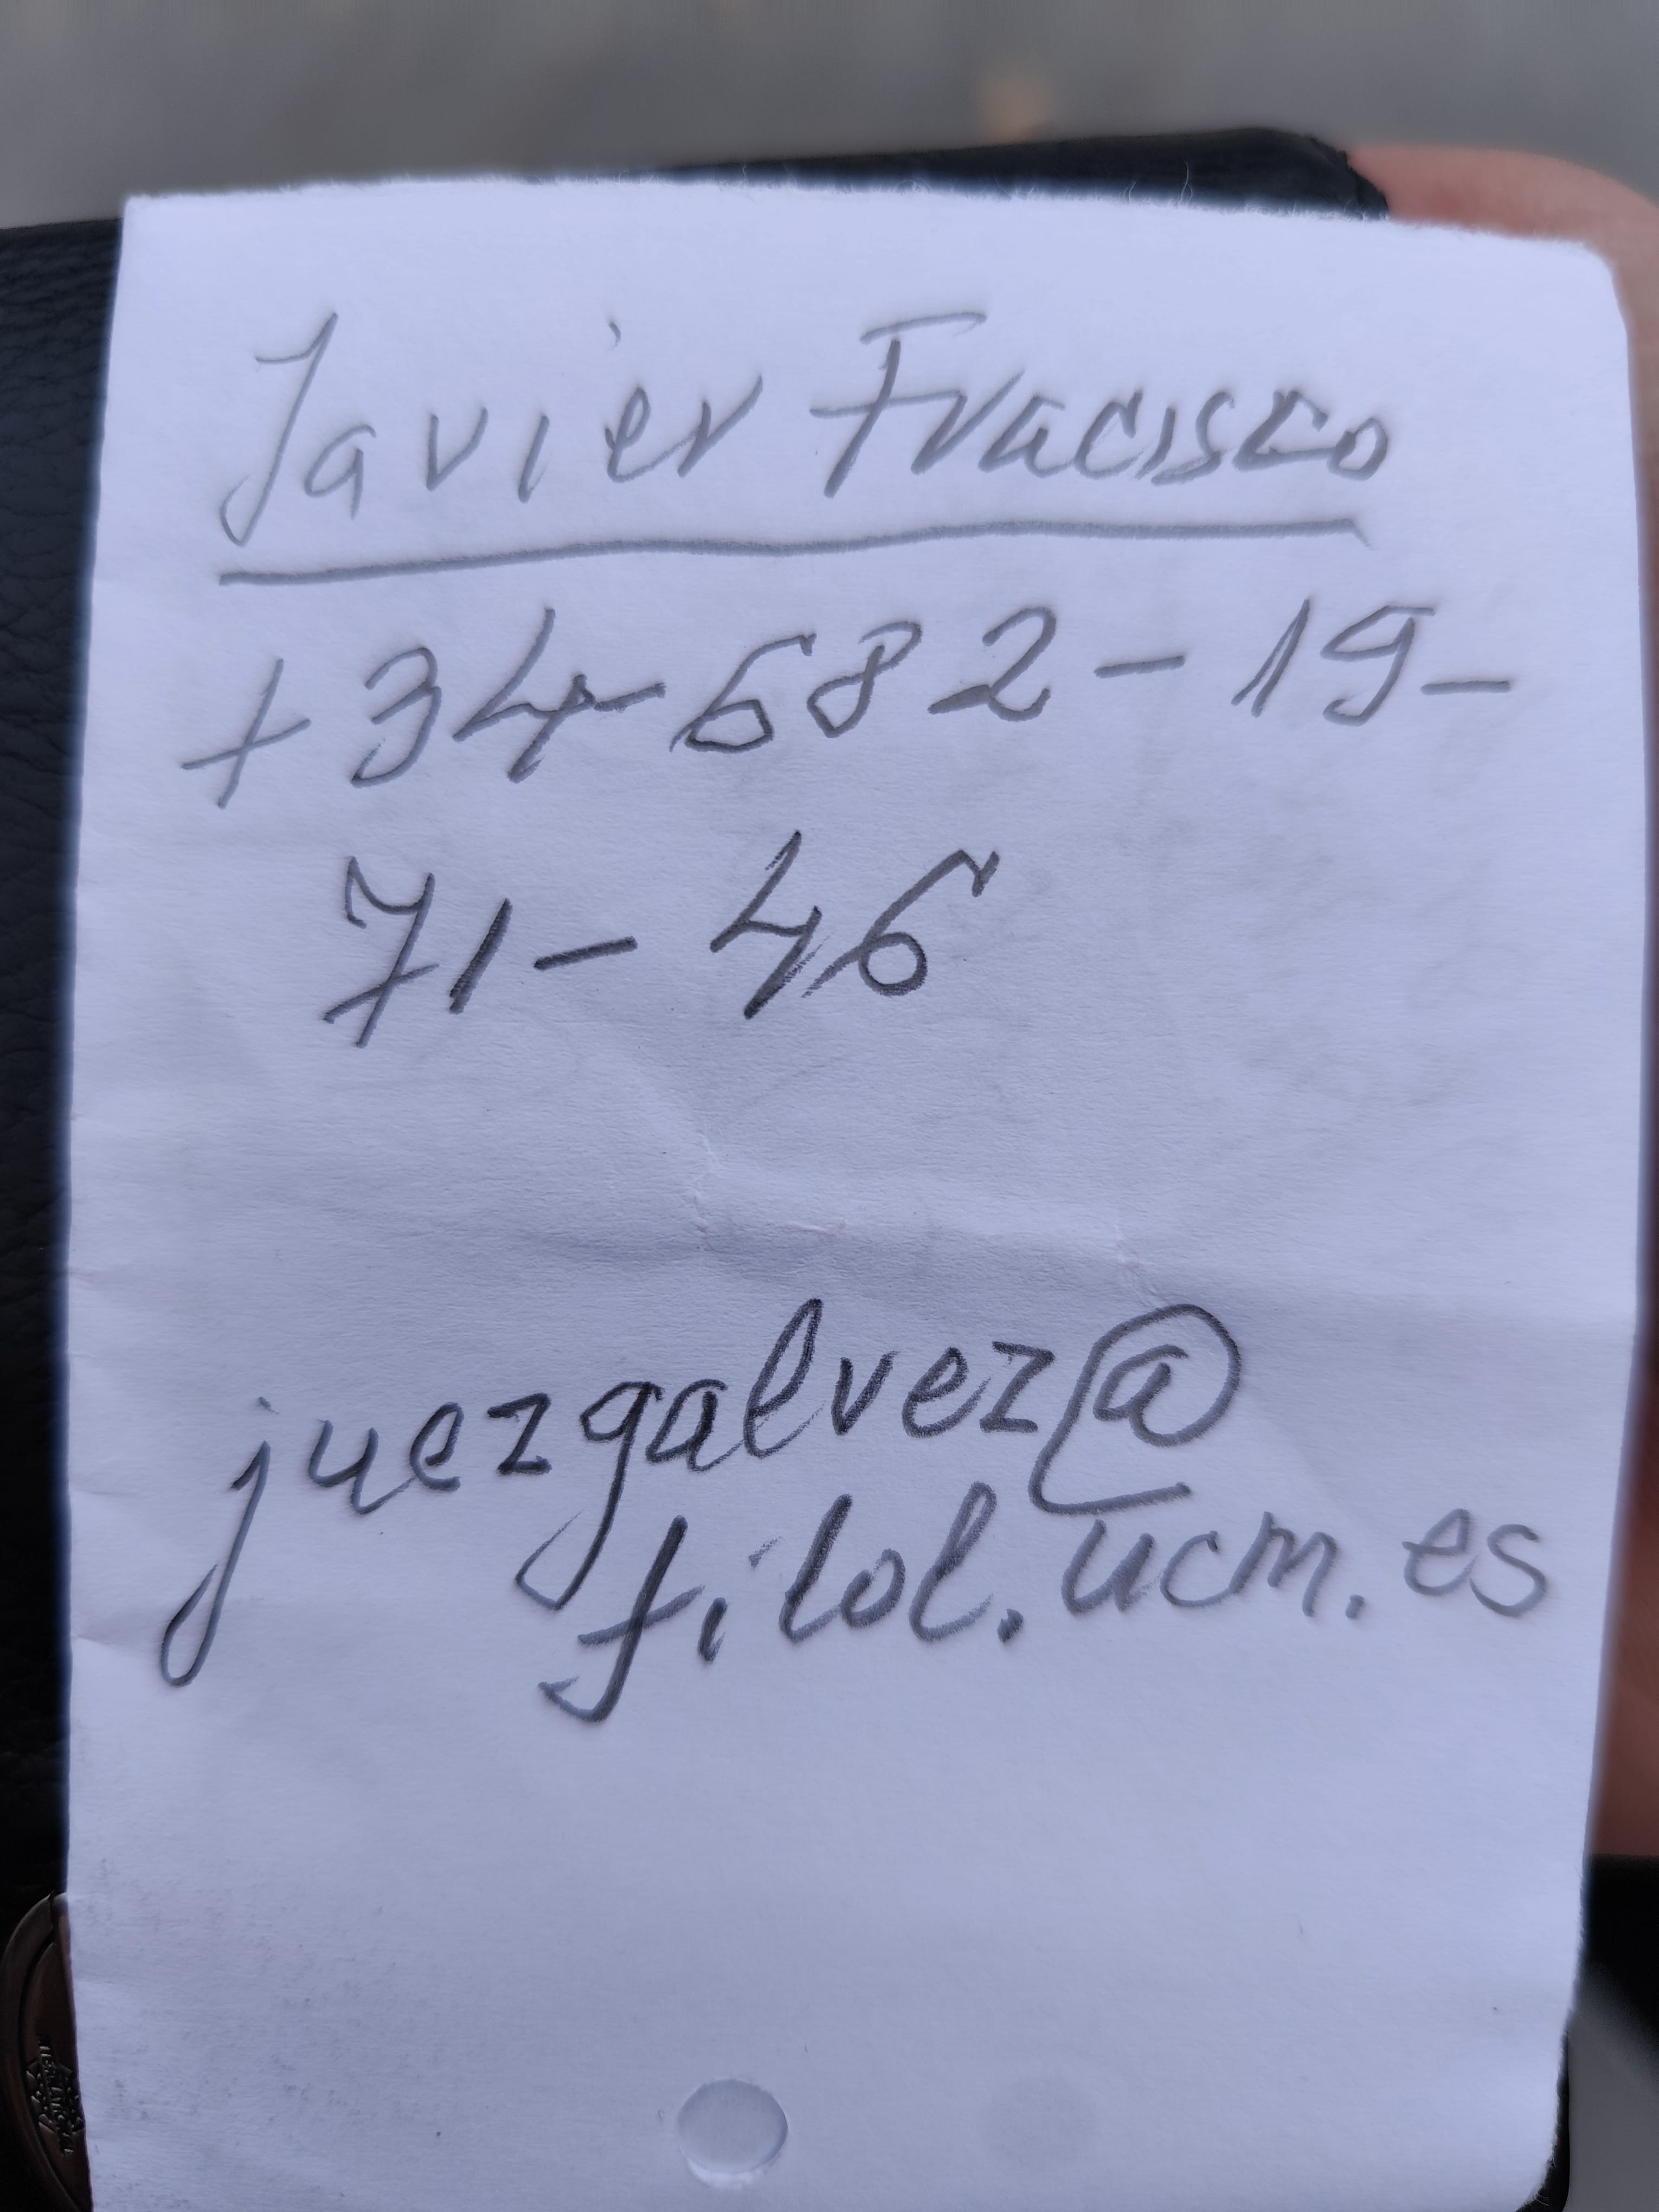 Javier Fracisco
+34-682-19-
71-46
juezgalvez@
filol.ucm.es